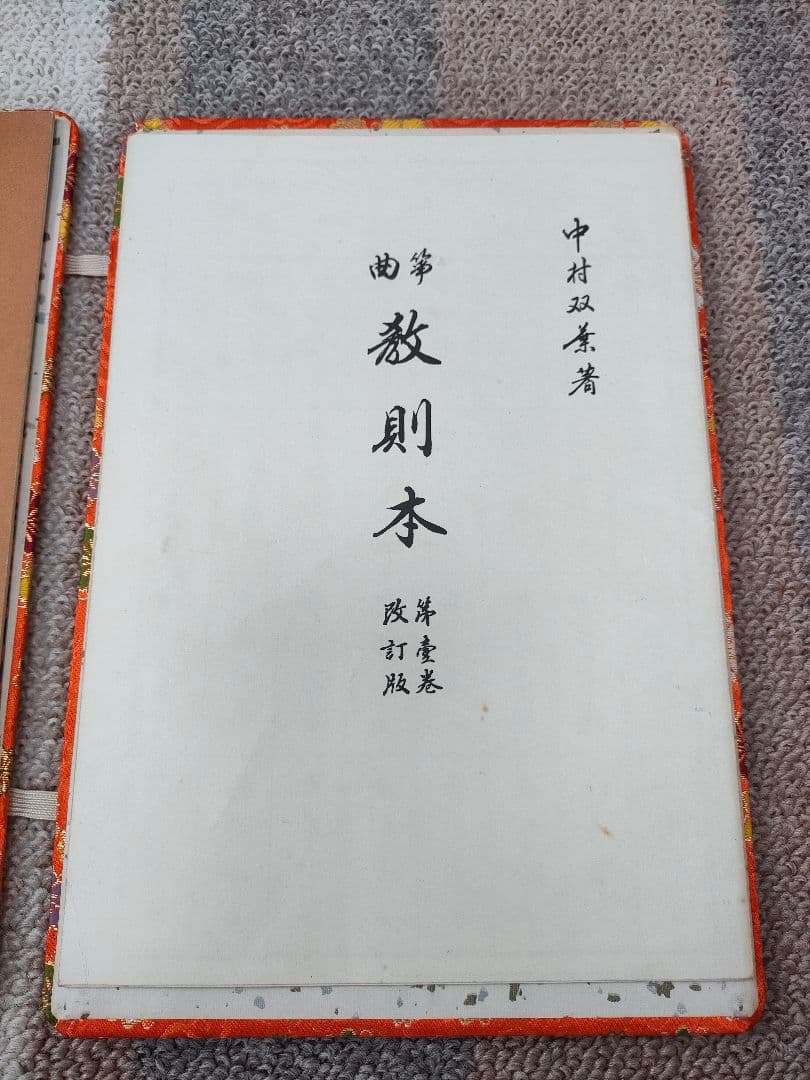 中村双葉著
箏曲
教則本
第壹巻
改訂版